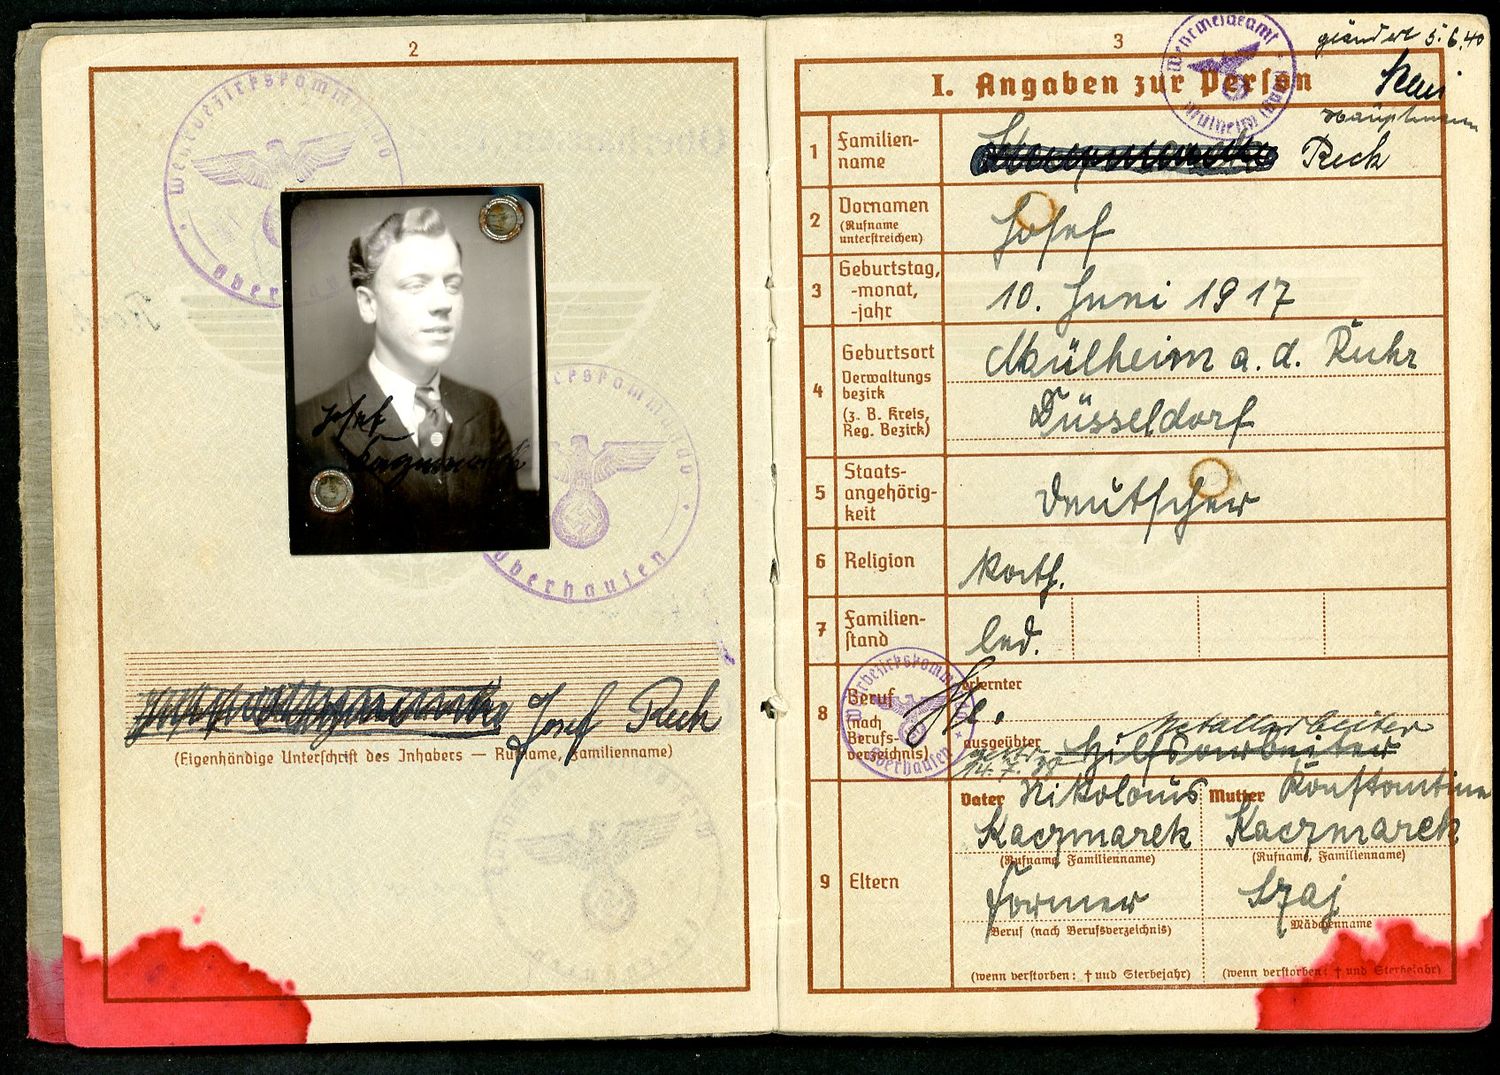 2
Wehrbezirkskommando
Oberhausen
Josef
Kaczmarek
Wehrbezirkskommando
Oberhausen
Josef Reck
(Eigenhändige Unterschrift des Inhabers — Rufname, Familienname)
3
Wehrmeldeamt
geändert 5.6.40
Hauptmann
I. Angaben zur Person
1 Familien-
name
Reck
2 Vornamen
(Rufname
unterstreichen)
Josef
3 Geburtstag,
-monat,
-jahr
10. Juni 1917
4 Geburtsort
Verwaltungs
bezirk
(z. B. Kreis,
Reg. Bezirk)
Mülheim a. d. Ruhr
Düsseldorf
5 Staats-
angehörig-
keit
Deutscher
6 Religion
kath.
7 Familien-
stand
led.
Wehrbezirkskommando
Oberhausen
8 Beruf
(nach
Berufs-
verzeichnis)
erlernter
ausgeübter
Metallarbeiter
Hilfsarbeiter
14.7.
9 Eltern
Vater Nikolaus
Kaczmarek
(Rufname, Familienname)
Former
Beruf (nach Berufsverzeichnis)
(wenn verstorben: † und Sterbejahr)
Mutter Konstantine
Kaczmarek
(Rufname, Familienname)
Szaj
Mädchenname
(wenn verstorben: † und Sterbejahr)